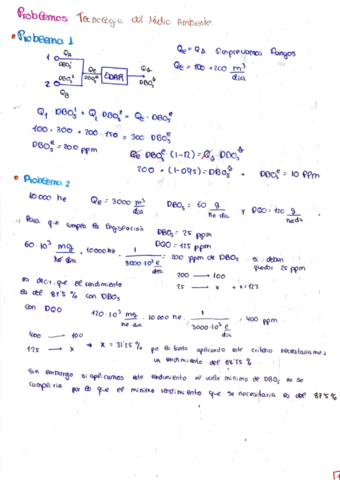 Problemas Tecnología del Medio Ambiente.
• Problema 1
1 QA DBO5^1
2 DBO5^2 QB
Qe DBO5^e EDAR Qs DBO5^s
Qe = Qs Despreciamos fangos
Qe = 100 + 200 m³/dia
Q1 DBO5^1 + Q2 DBO5^2 = Qe · DBO5^e
100 · 300 + 200 · 150 = 300 DBO5^e
DBO5^e = 200 ppm
Qe DBO5^e (1-η) = Qs DBO5^s
200 · (1-0,95) = DBO5^s DBO5^s = 10 ppm
• Problema 2
10000 he Qe = 3000 m³/dia DBO5 = 60 g/he dia y DQO = 120 g/he dia
Para que cumpla la legislación
DBO5 = 25 ppm
DQO = 125 ppm
60 · 10³ mg/he dia · 10000 he · 1/3000·10³ ℓ/dia = 200 ppm de DBO5 si deben quedar 25 ppm
200 — 100
25 — x
es decir, que el rendimiento
es del 87,5 % con DBO5
con DQO 120·10³ mg/he dia · 10000 he · 1/3000·10³ ℓ/dia 400 ppm
400 — 100
125 — x → x = 31,25 % por lo tanto aplicando este criterio necesitaríamos
un rendimiento del 68,75 %
Sin embargo si aplicamos este rendimiento el valor mínimo de DBO5 no se
cumpliría por lo que el mínimo rendimiento que se necesitaría es del 87,5 %